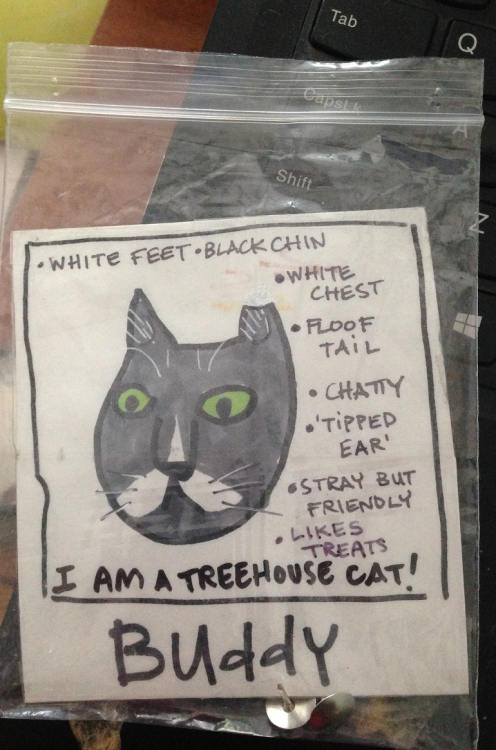 Tab
Q
CapsLk
A
Shift
Z
•WHITE FEET •BLACK CHIN
•WHITE
CHEST
•FLOOF
TAIL
•CHATTY
•'TIPPED
EAR'
•STRAY BUT
FRIENDLY
•LIKES
TREATS
I AM A TREEHOUSE CAT!
BUddY